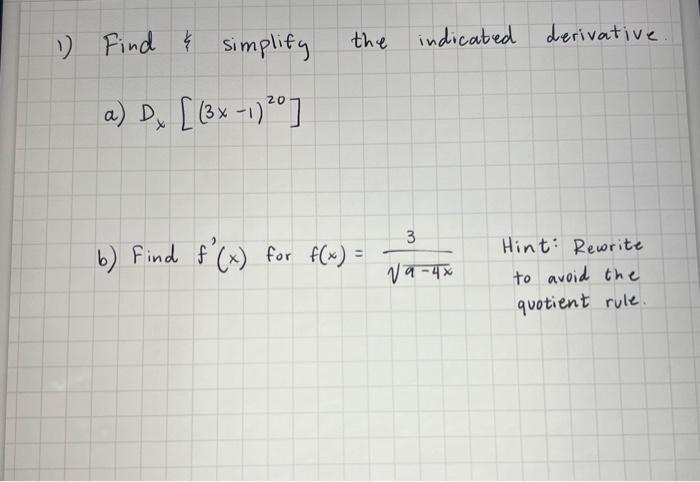 1) Find & simplify the indicated derivative.
a) Dₓ [(3x-1)²⁰]
b) Find f'(x) for f(x) = 3/√(9-4x) Hint: Rewrite
to avoid the
quotient rule.